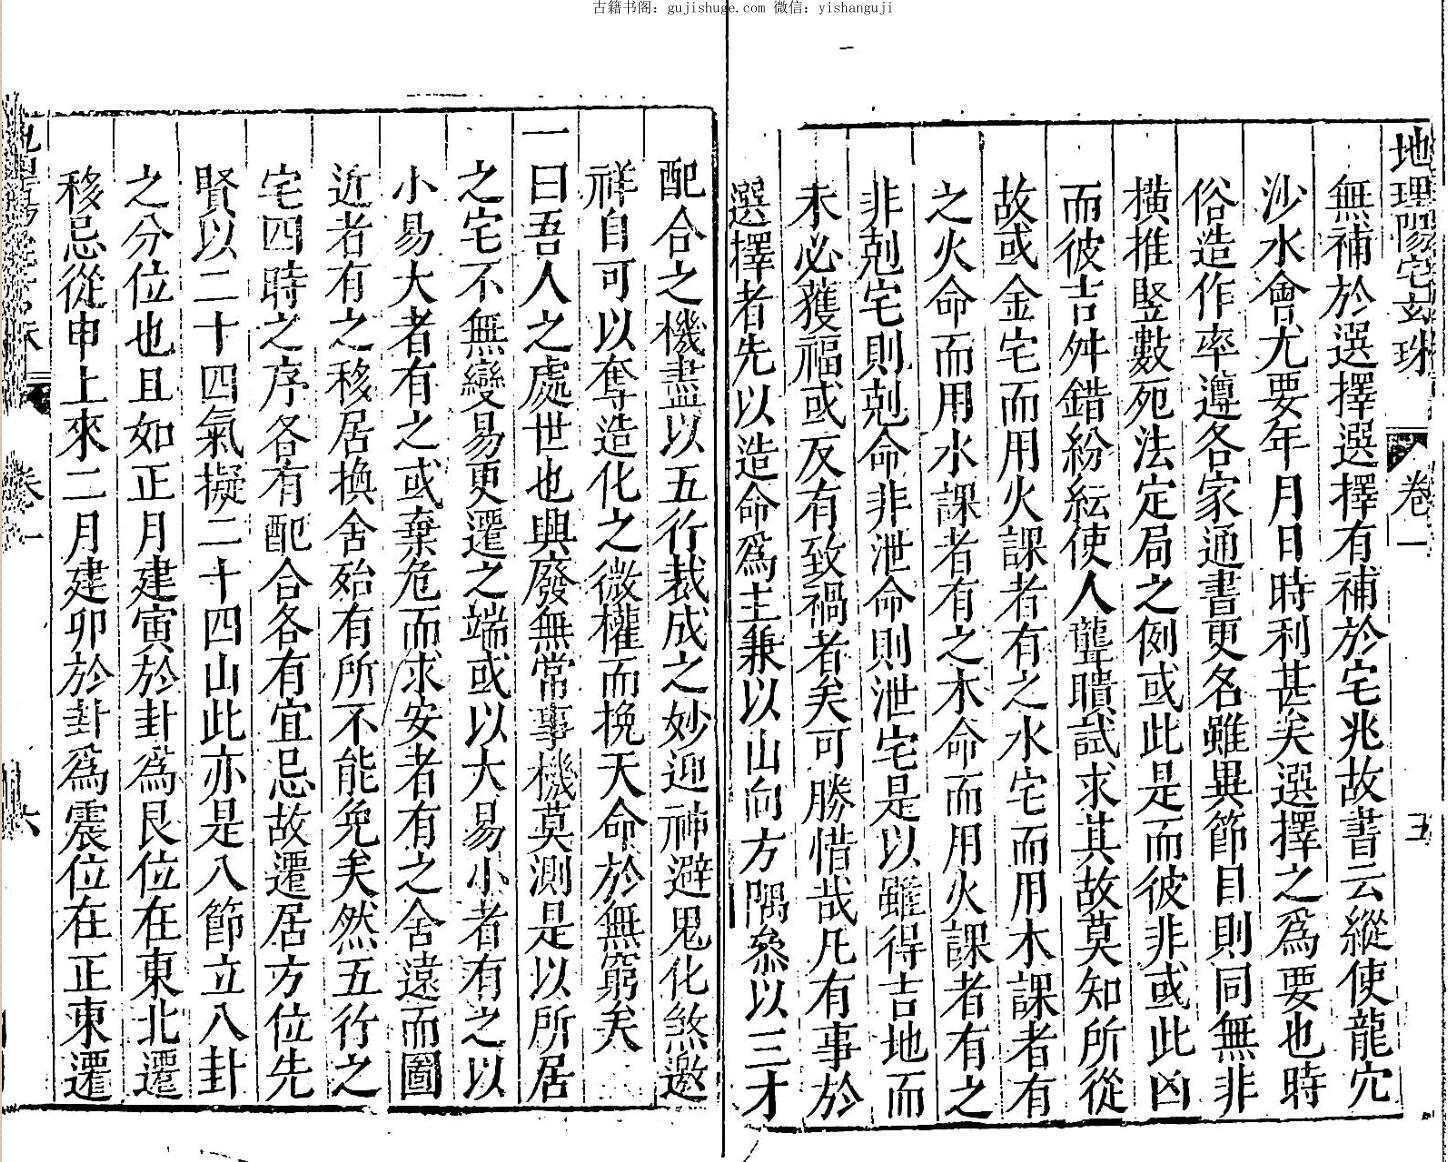 古籍书阁：gujishuge.com 微信：yishanguji
地理陽宅玄珠 卷一 五
無補於選擇選擇有補於宅兆故書云縱使龍穴
沙水會尤要年月日時利甚矣選擇之為要也時
俗造作率遵各家通書更名雖異節目則同無非
橫推竪數死法定局之例或此是而彼非或此凶
而彼吉舛錯紛紜使人聾瞶試求其故莫知所從
故或金宅而用火課者有之水宅而用木課者有
之火命而用水課者有之木命而用火課者有之
非剋宅則剋命非泄命則泄宅是以雖得吉地而
未必獲福或反有致禍者矣可勝惜哉凡有事於
選擇者先以造命爲主兼以山向方隅叅以三才
配合之機盡以五行裁成之妙迎神避鬼化煞邀
祥自可以奪造化之微權而挽天命於無窮矣
一曰吾人之處世也興廢無常事機莫測是以所居
之宅不無變易更遷之端或以大易小者有之以
小易大者有之或棄危而求安者有之舍遠而圖
近者有之移居換舍殆有所不能免矣然五行之
宅四時之序各有配合各有宜忌故遷居方位先
賢以二十四氣擬二十四山此亦是八節立八卦
之分位也且如正月建寅於卦爲艮位在東北遷
移忌從申上來二月建卯於卦爲震位在正東遷
卷一 六